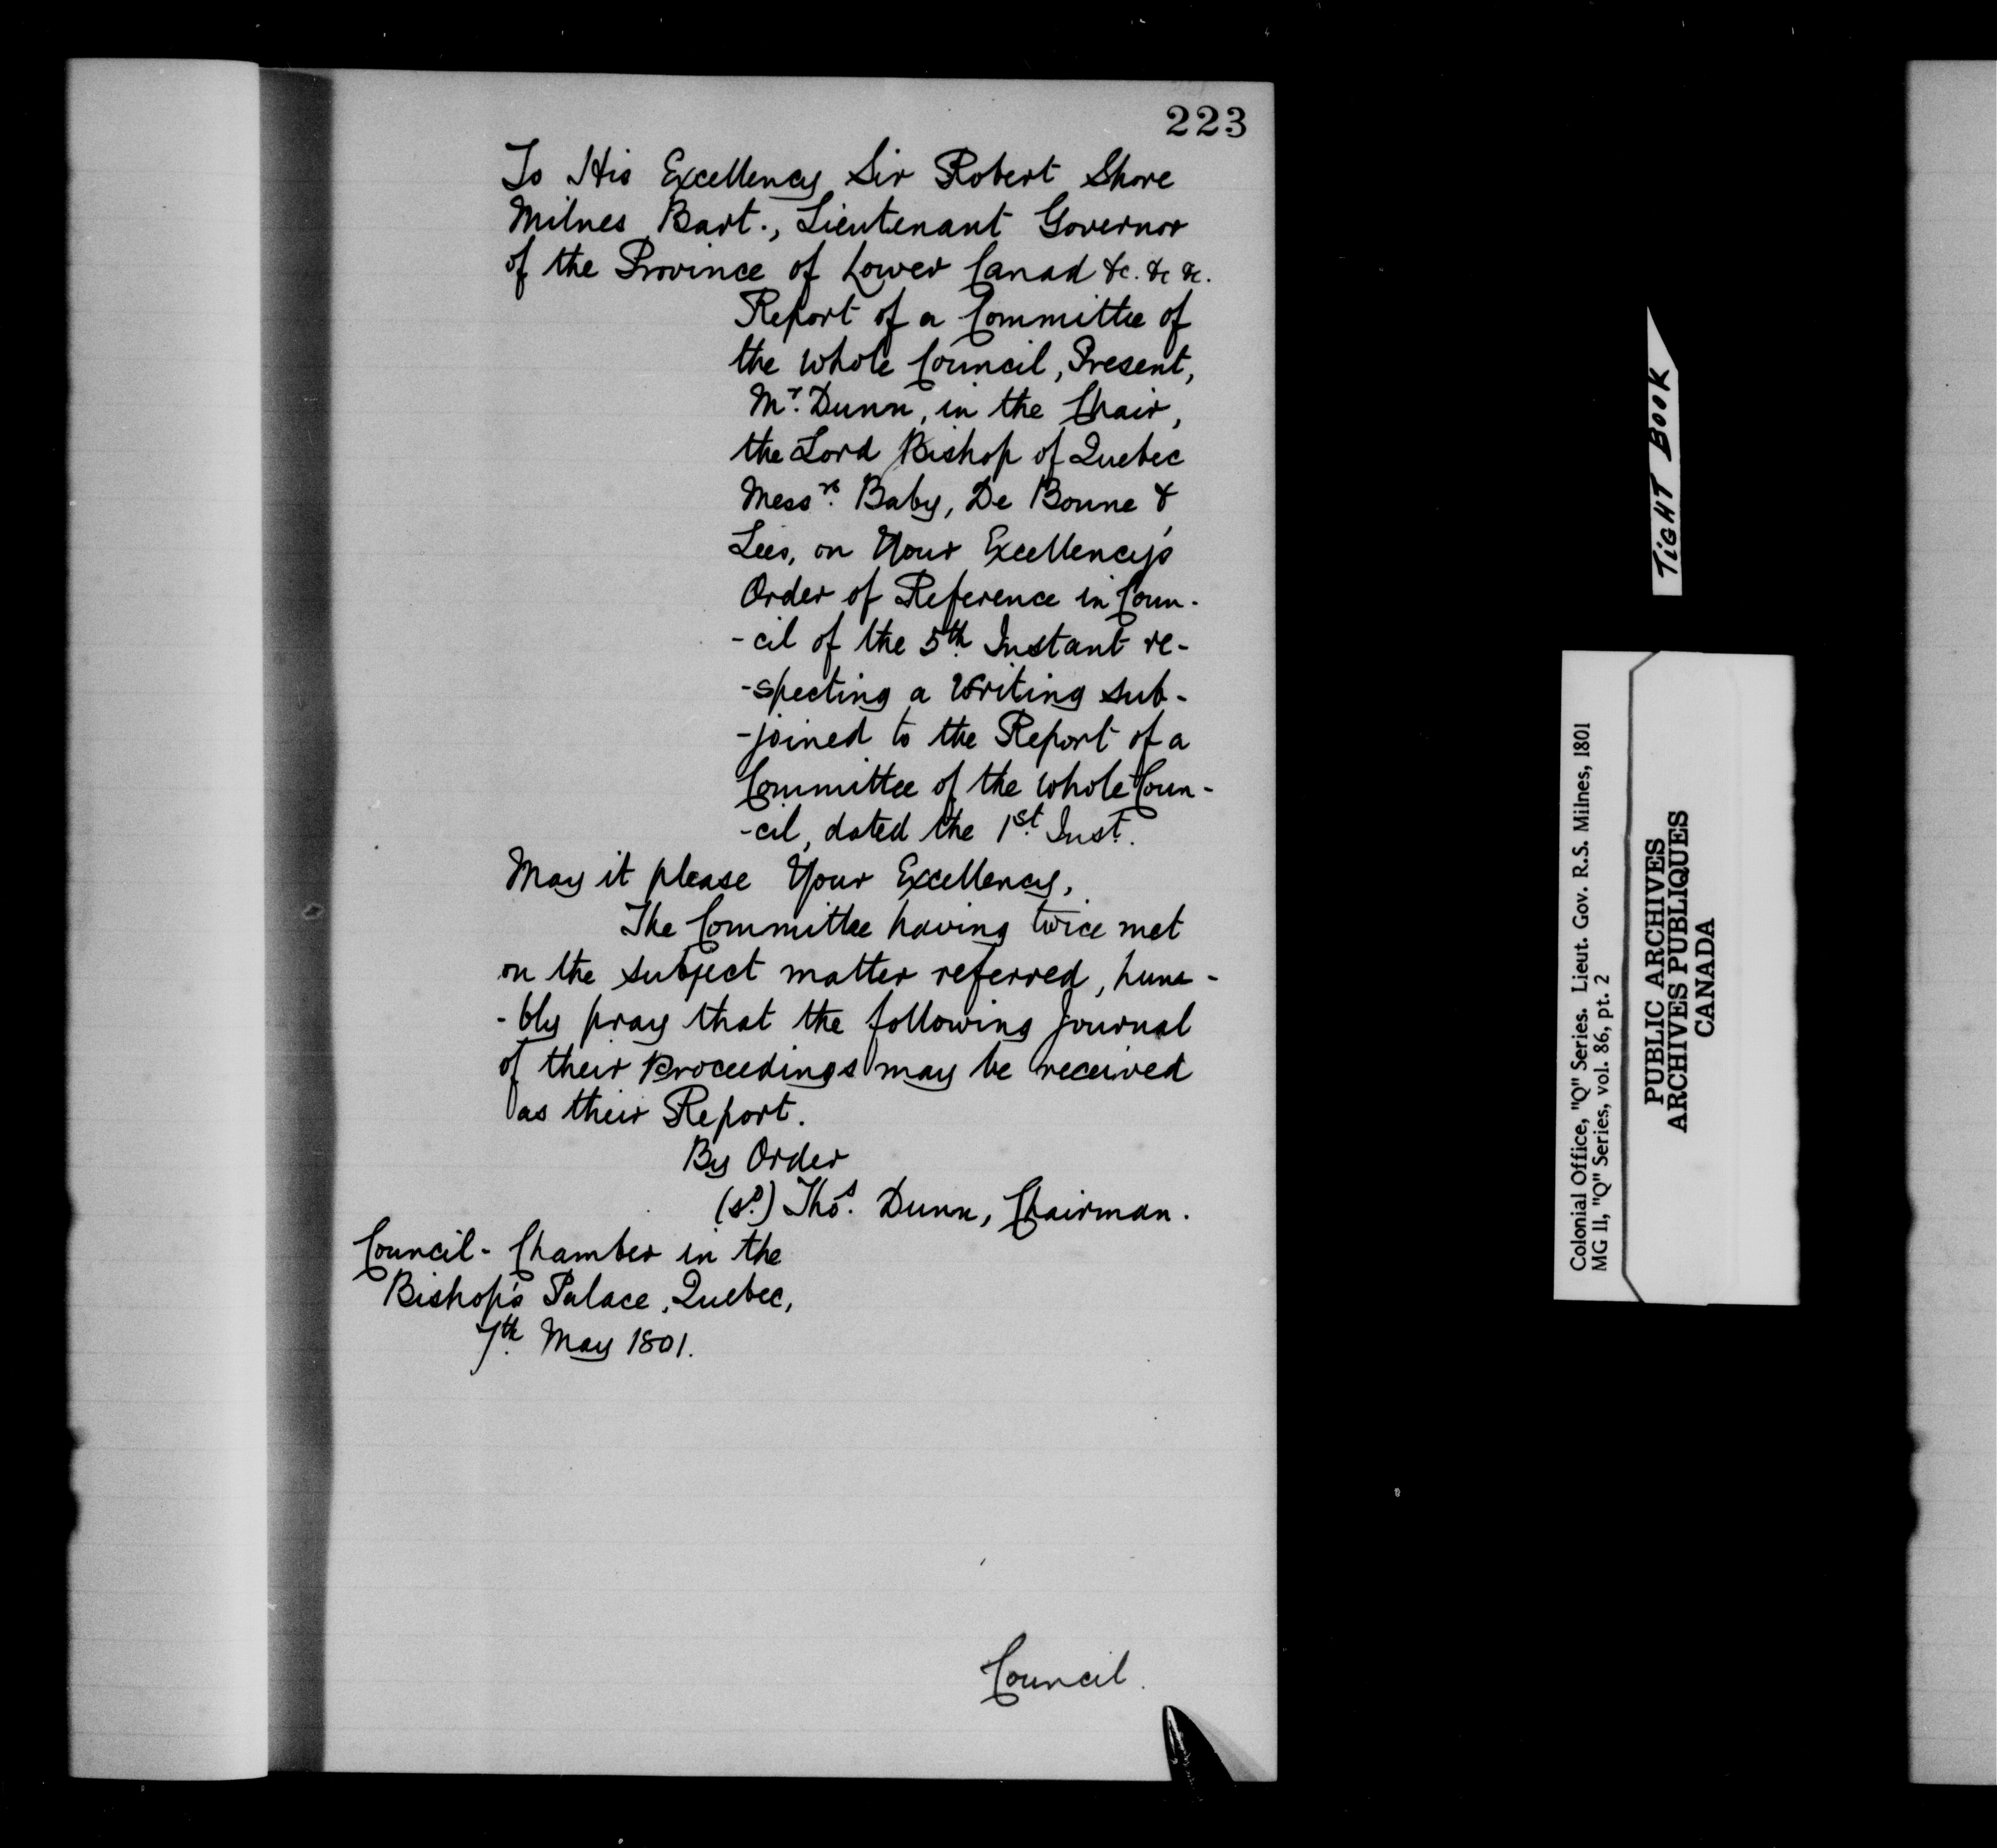 223
To His Excellency Sir Robert Shore
Milnes Bart., Lieutenant Governor
of the Province of Lower Canad &c. &c &c.
Report of a Committee of
the whole Council, Present,
Mr. Dunn, in the Chair,
the Lord Bishop of Quebec
Messrs. Baby, De Bonne &
Lees, on Your Excellency's
Order of Reference in Coun-
-cil of the 5th Instant re-
-specting a Writing sub-
-joined to the Report of a
Committee of the whole Coun-
-cil, dated the 1st. Inst.
May it please Your Excellency,
The Committee having twice met
on the subject matter referred, hum-
-bly pray that the following Journal
of their Proceedings may be received
as their Report.
By Order
(sd.) Thos. Dunn, Chairman.
Council-Chamber in the
Bishop's Palace, Quebec,
7th. May 1801.
Council.
TIGHT BOOK
Colonial Office, "Q" Series. Lieut. Gov. R.S. Milnes, 1801
MG 11, "Q" Series, vol. 86, pt. 2
PUBLIC ARCHIVES
ARCHIVES PUBLIQUES
CANADA